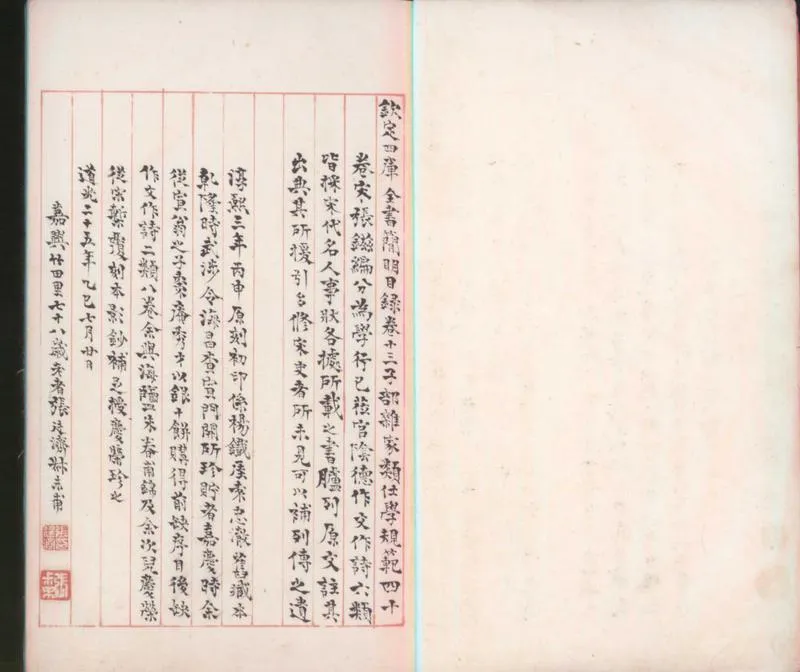 欽定四庫全書簡明目錄卷十三子部雜家類仕學規範四十
卷宋張鎡編分為學行己蒞官陰德作文作詩六類
皆採宋代名人事狀各據所載之書臚列原文註其
出典其所援引多修宋史者所未見可以補列傳之遺
淳熙三年丙申原刻初印係楊鐵厓泰忠澈舊藏本
乾隆時武涉令海昌查賓門開所珍貯者嘉慶時余
從寅翁之子秀才以銀十餅購得前缺序目後缺
作文作詩二類八卷余與海鹽朱春翁錦及余次兒慶榮
從宋槧覆刻本影鈔補足授慶榮珍之
道光二十五年乙巳七月廿日
嘉興廿田里七十八歲老者張廷濟叔未甫